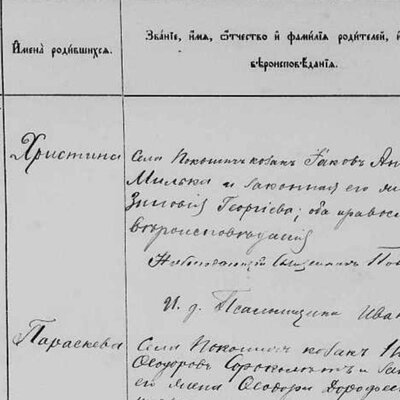 Имена родившихся.
Званіе, имя, отчество и фамилія родителей, и
вѣроисповѣданія.
Христина
Села Покошичъ козакъ Іаковъ Ан
Милька и законная его
Зиновія Георгіева; оба правос
вѣроисповѣданія
Священникъ
И. д. Псаломщика Иван
Параскева
Села Покошичъ козакъ
Ѳеодоровъ и
его жена Ѳеодора